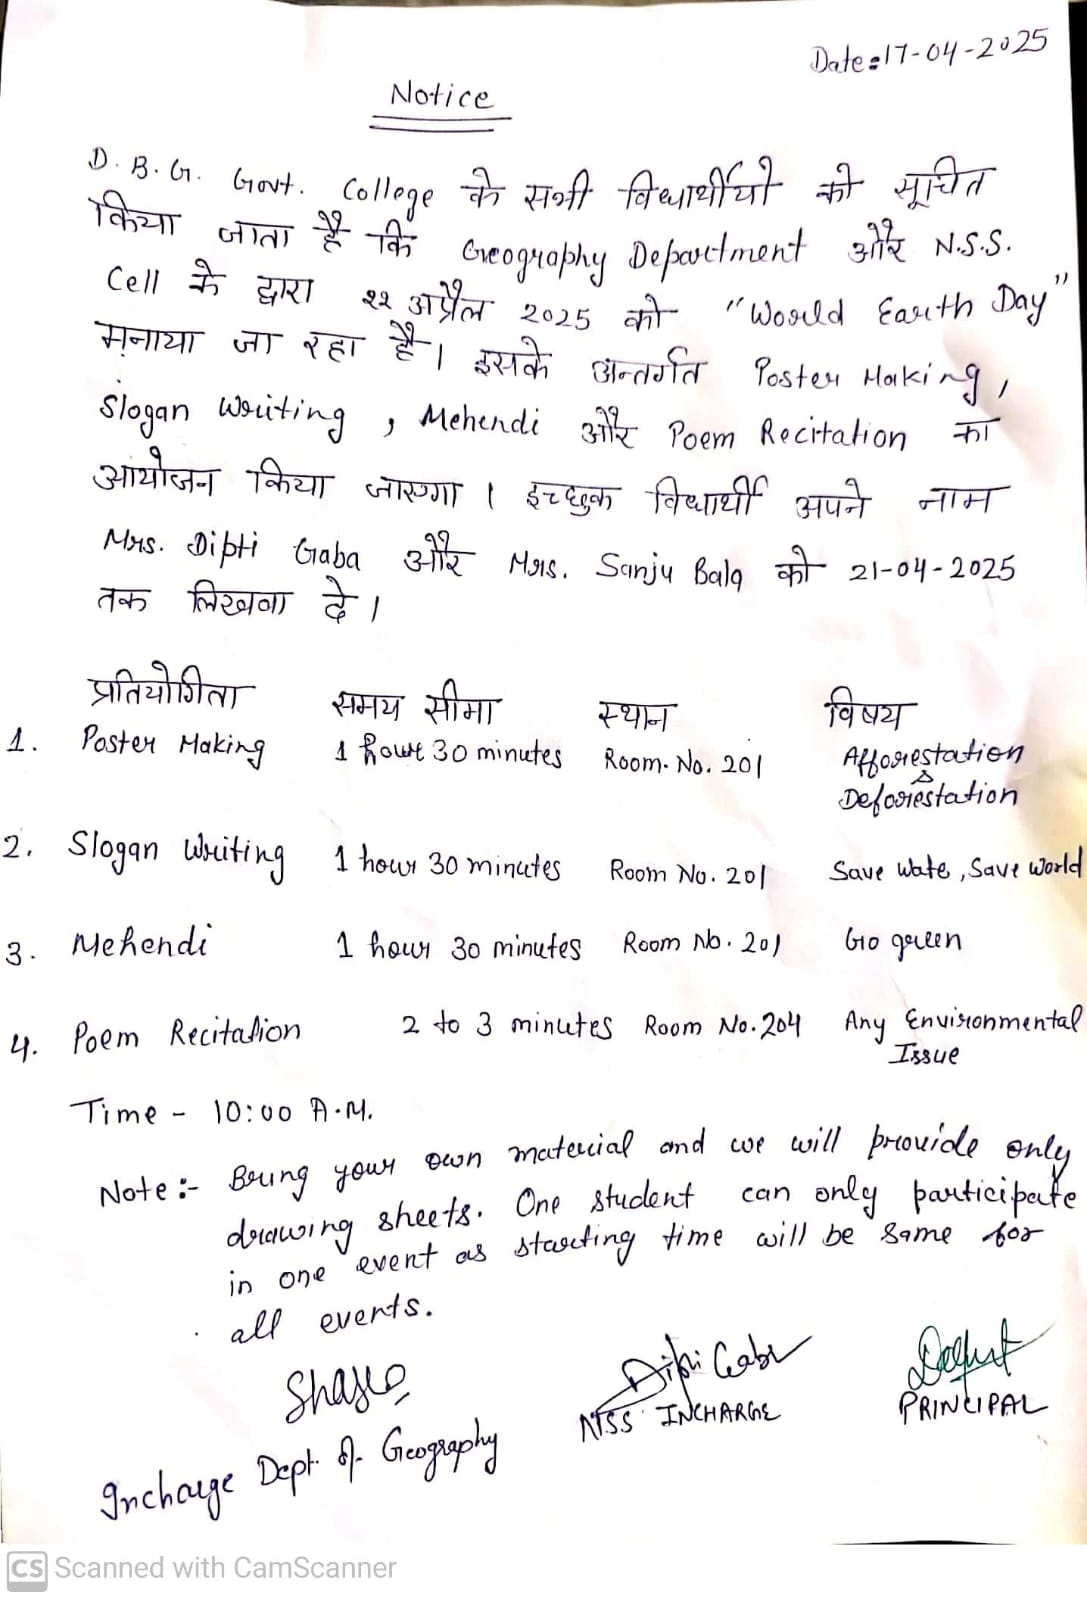 Date:17-04-2025
Notice
D.B.G. Govt. College के सभी विधार्थीयों को सूचित
किया जाता है कि Geography Department और N.S.S.
Cell के द्वारा २२ अप्रैल 2025 को "World Earth Day"
मनाया जा रहा है। इसके अन्तर्गत Poster Making,
Slogan Writing, Mehendi और Poem Recitation का
आयोजन किया जाएगा। इच्छुक विधार्थी अपने नाम
Mrs. Dipti Gaba और Mrs. Sanju Bala को 21-04-2025
तक लिखवा दे।
प्रतियोगिता समय सीमा स्थान विषय
1. Poster Making 1 hour 30 minutes Room. No. 201 Afforestation
&
Deforestation
2. Slogan Writing 1 hour 30 minutes Room No. 201 Save Wate, Save World
3. Mehendi 1 hour 30 minutes Room No. 201 Go green
4. Poem Recitation 2 to 3 minutes Room No. 204 Any Environmental
Issue
Time - 10:00 A.M.
Note:- Bring your own material and we will provide only
drawing sheets. One student can only participate
in one event as starting time will be same for
all events.
Dipti Gaba
NSS INCHARGE
PRINCIPAL
Incharge Dept. of Geography
CS Scanned with CamScanner